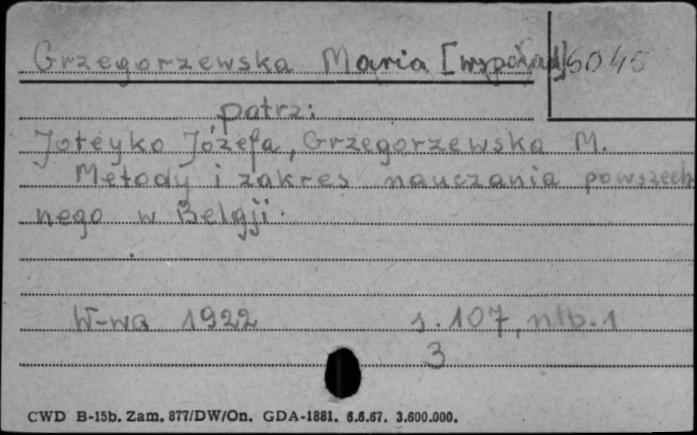 Grzegorzewska Maria [współaut] 6045
patrz:
Joteyko Józefa, Grzegorzewska M.
Metody i zakres nauczania powszech
nego w Belgji.
W-wa 1922 s. 107, nlb. 1
3
CWD B-15b. Zam. 877/DW/On. GDA-1881. 6.6.67. 3.600.000.